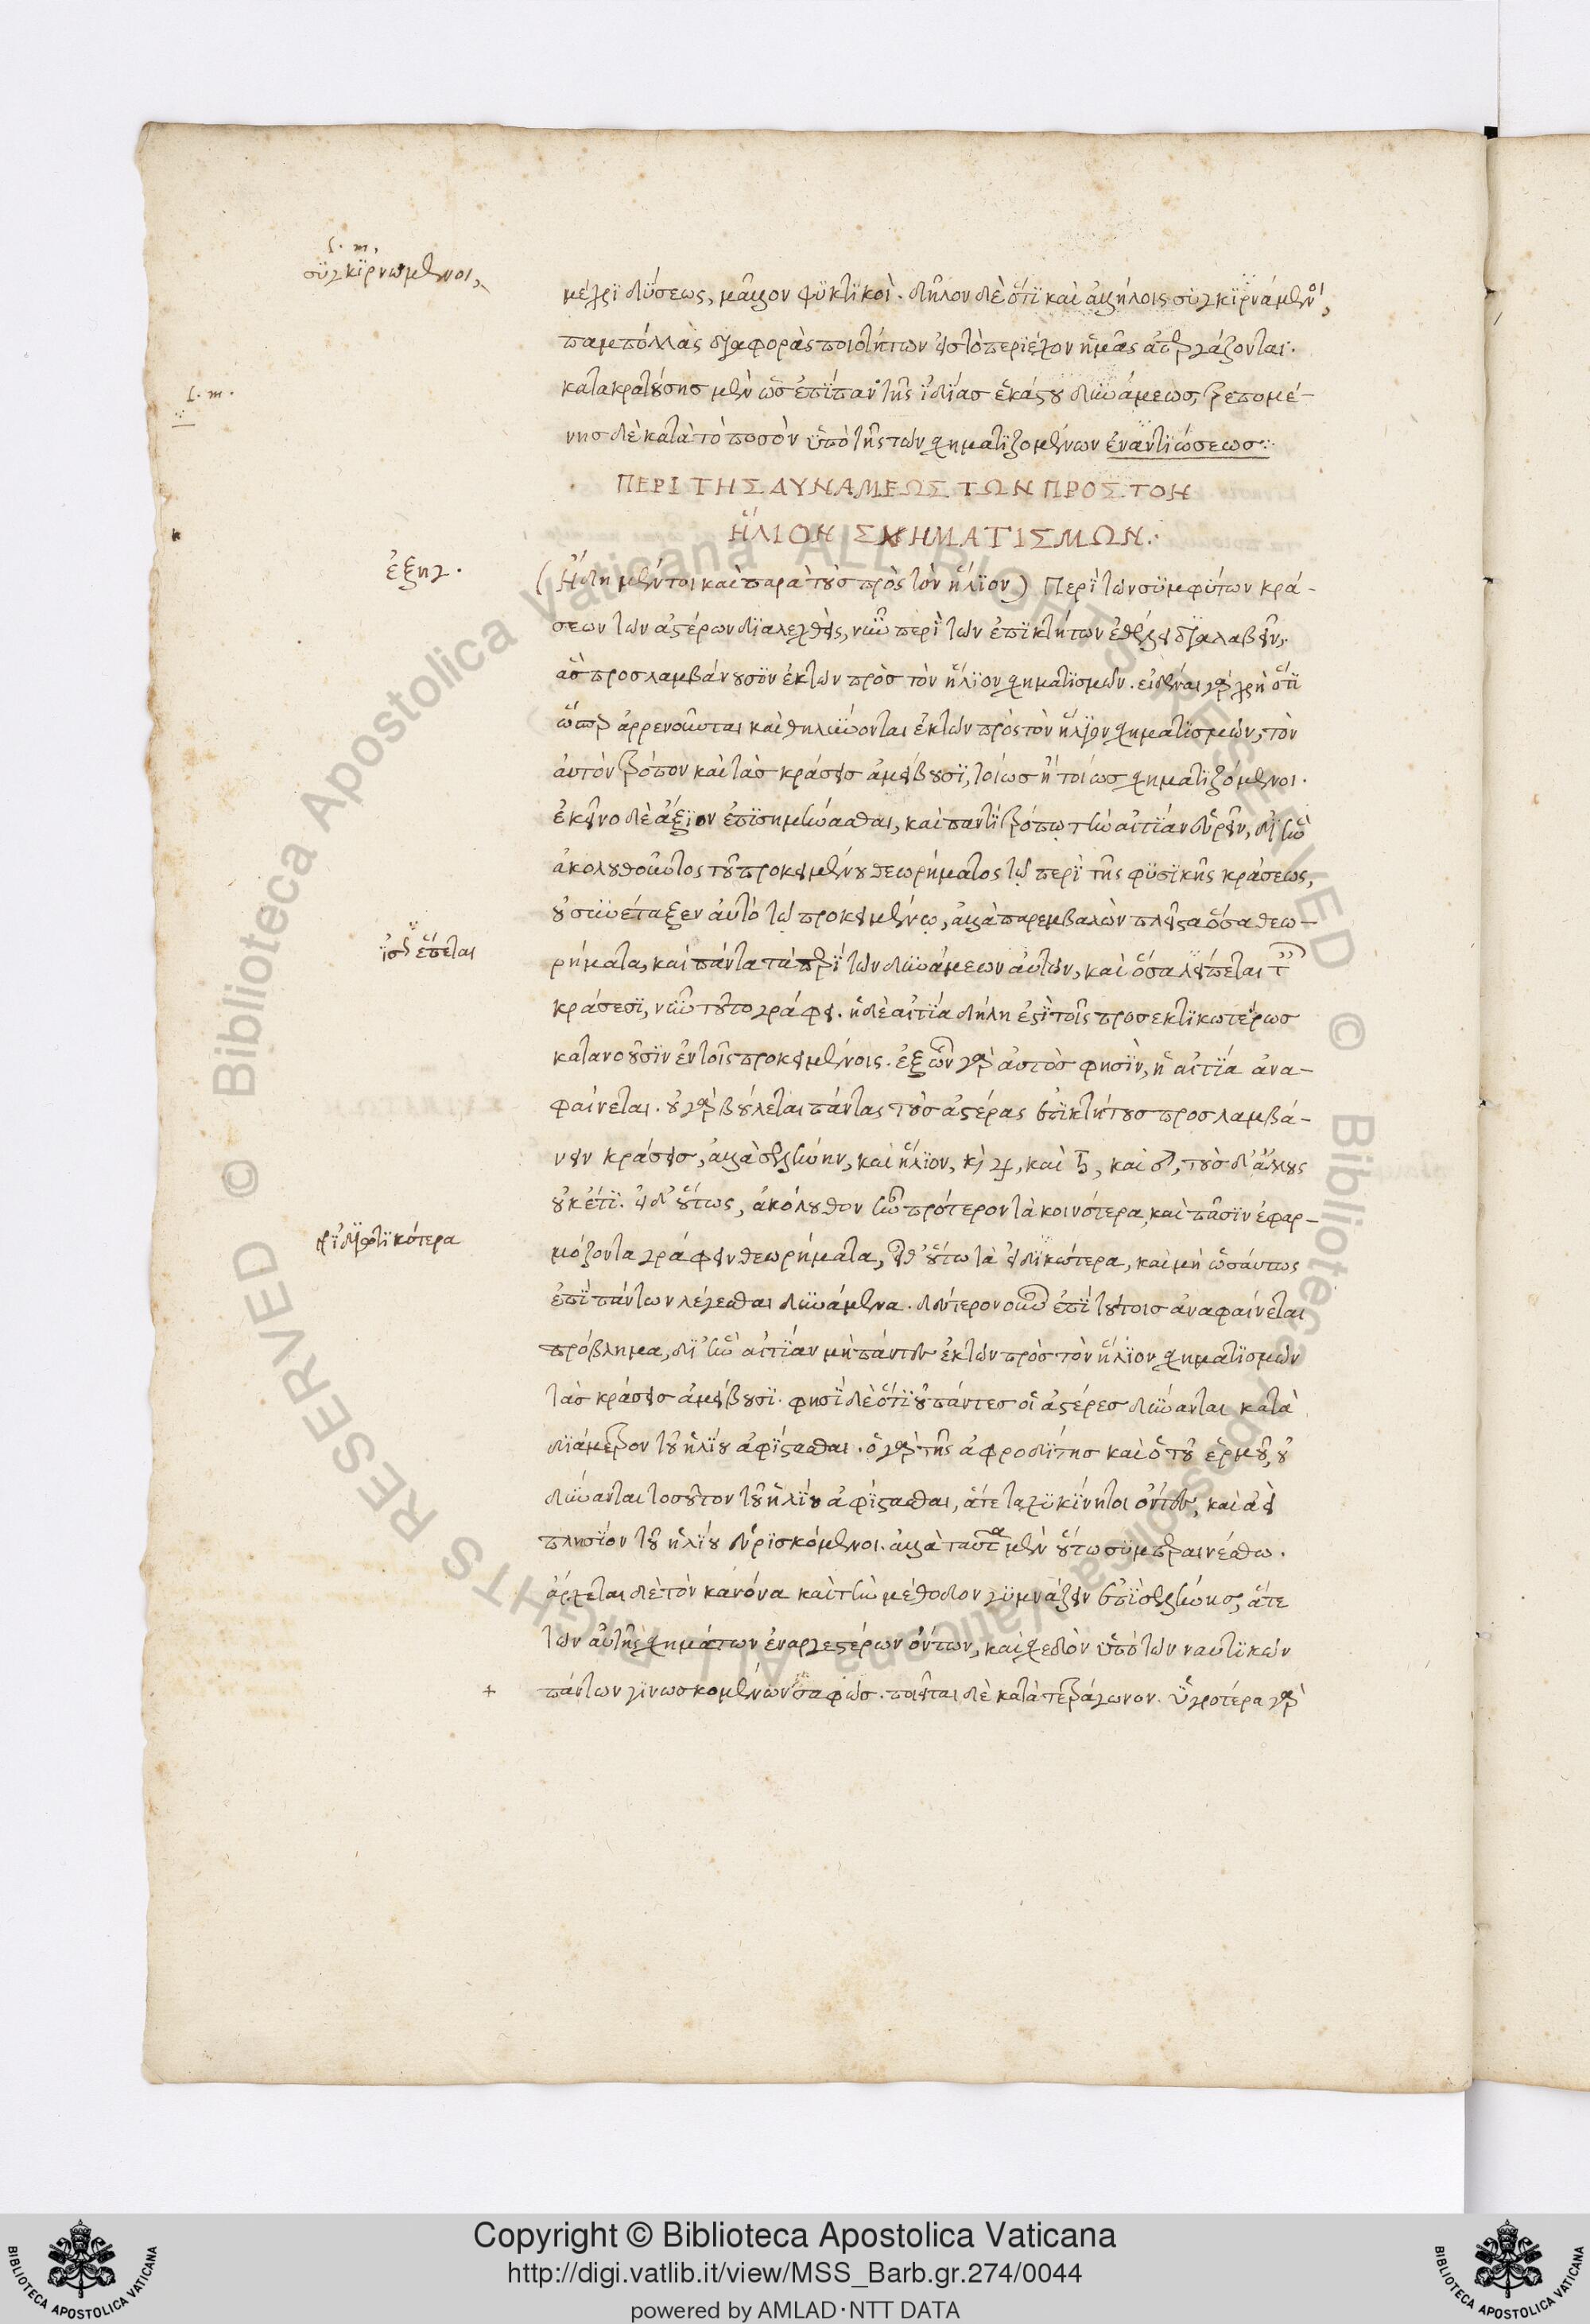 ς. m.
συγκιρνωμένοι,
μέχρι δύσεως, μᾶλλον ψυκτικοί. δῆλον δὲ ὅτι καὶ ἀλλήλοις συγκιρνάμενοι,
παμπόλλας διαφορὰς ποιοτήτων εἰς τὸ περιέχον ἡμᾶς ἀπεργάζονται.
ς. m.
κατακρατούσης μὲν ὡς ἐπίπαν τῆς ἰδίας ἑκάστου δυνάμεως, τρεπομέ-
νης δὲ κατὰ τὸ ποσὸν ὑπὸ τῆς τῶν σχηματιζομένων ἐναντιώσεως:
ΠΕΡΙ ΤΗΣ ΔΥΝΑΜΕΩΣ ΤΩΝ ΠΡΟΣ ΤΟΝ
ἭΛΙΟΝ ΣΧΗΜΑΤΙΣΜΩΝ.
ἐξηγ.
(Ἤδη μέντοι καὶ παρὰ τοὺς πρὸς τὸν ἥλιον) Περὶ τῶν συμφύτων κρά-
σεων τῶν ἀστέρων διαλεχθεὶς, νῦν περὶ τῶν ἐπικτήτων ἐθέλει διαλαβεῖν,
ἃς προσλαμβάνουσιν ἐκ τῶν πρὸς τὸν ἥλιον σχηματισμῶν. εἰδέναι γὰρ χρὴ ὅτι
ὥσπερ ἀρρενοῦνται καὶ θηλύνονται ἐκ τῶν πρὸς τὸν ἥλιον σχηματισμῶν, τὸν
αὐτὸν τρόπον καὶ τὰς κράσεις ἀμείβουσι, τοίως ἢ τοίως σχηματιζόμενοι.
ἐκεῖνο δὲ ἄξιον ἐπισημήνασθαι, καὶ παντὶ τρόπῳ τὴν αἰτίαν εὑρεῖν, δι' ἣν
ἀκολουθοῦντος τοῦ προκειμένου θεωρήματος τῷ περὶ τῆς φυσικῆς κράσεως,
οὐ συνέταξεν αὐτὸ τῷ προκειμένῳ, ἀλλὰ παρεμβαλὼν πλεῖστα ὅσα θεω-
ἴσ ἕπεται
ρήματα, καὶ πάντα τὰ περὶ τῶν δυνάμεων αὐτῶν, καὶ ὅσα λείπεται τ
κράσεσι, νῦν τοῦτο γράφει. ἡ δὲ αἰτία δήλη ἐστὶ τοῖς προσεκτικωτέρως
κατανοοῦσιν ἐν τοῖς προκειμένοις. ἐξ ὧν γὰρ αὐτὸς φησὶν, ἡ αἰτία ἀνα-
φαίνεται. οὐ γὰρ βούλεται πάντας τοὺς ἀστέρας ἐπικτήτους προσλαμβά-
νειν κράσεις, ἀλλὰ σελήνην, καὶ ἥλιον, κὶ ♃, καὶ ♄, καὶ ♂, τοὺς δ' ἄλλους
οὐκέτι. εἰ δ' οὕτως, ἀκόλουθον ἦν πρότερον τὰ κοινότερα, καὶ πᾶσιν ἐφαρ-
μόζοντα γράφειν θεωρήματα, εἶθ' οὕτω τὰ εἰδικώτερα, καὶ μὴ ὡσαύτως
ἐπὶ πάντων λέγεσθαι δυνάμενα. δεύτερον οὖν ἐπὶ τούτοις ἀναφαίνεται
πρόβλημα, δι' ἣν αἰτίαν μὴ πάντες ἐκ τῶν πρὸς τὸν ἥλιον σχηματισμῶν
τὰς κράσεις ἀμείβουσι. φησὶ δὲ ὅτι οὐ πάντες οἱ ἀστέρες δύνανται κατὰ
διάμετρον τοῦ ἡλίου ἀφίστασθαι. ὁ γὰρ τῆς ἀφροδίτης καὶ ὁ τοῦ ἑρμοῦ, οὐ
δύνανται τοσοῦτον τοῦ ἡλίου ἀφίστασθαι, ἅτε ταχυκίνητοι ὄντες, καὶ ἀεὶ
πλησίον τοῦ ἡλίου εὑρισκόμενοι. ἀλλὰ ταῦτα μὲν οὕτω συμπεραινέσθω.
ἄρχεται δὲ τὸν κανόνα καὶ τὴν μέθοδον γυμνάζειν ἐπὶ σελήνης, ἅτε
τῶν αὐτῆς σχημάτων ἐναργεστέρων ὄντων, καὶ σχεδὸν ὑπὸ τῶν ναυτικῶν
+
πάντων γινωσκομένων σαφῶς. ποιεῖται δὲ κατὰ τετράγωνον. ὑγροτέρα γὰρ
Copyright © Biblioteca Apostolica Vaticana
http://digi.vatlib.it/view/MSS_Barb.gr.274/0044
powered by AMLAD·NTT DATA
BIBLIOTECA APOSTOLICA VATICANA
BIBLIOTECA APOSTOLICA VATICANA